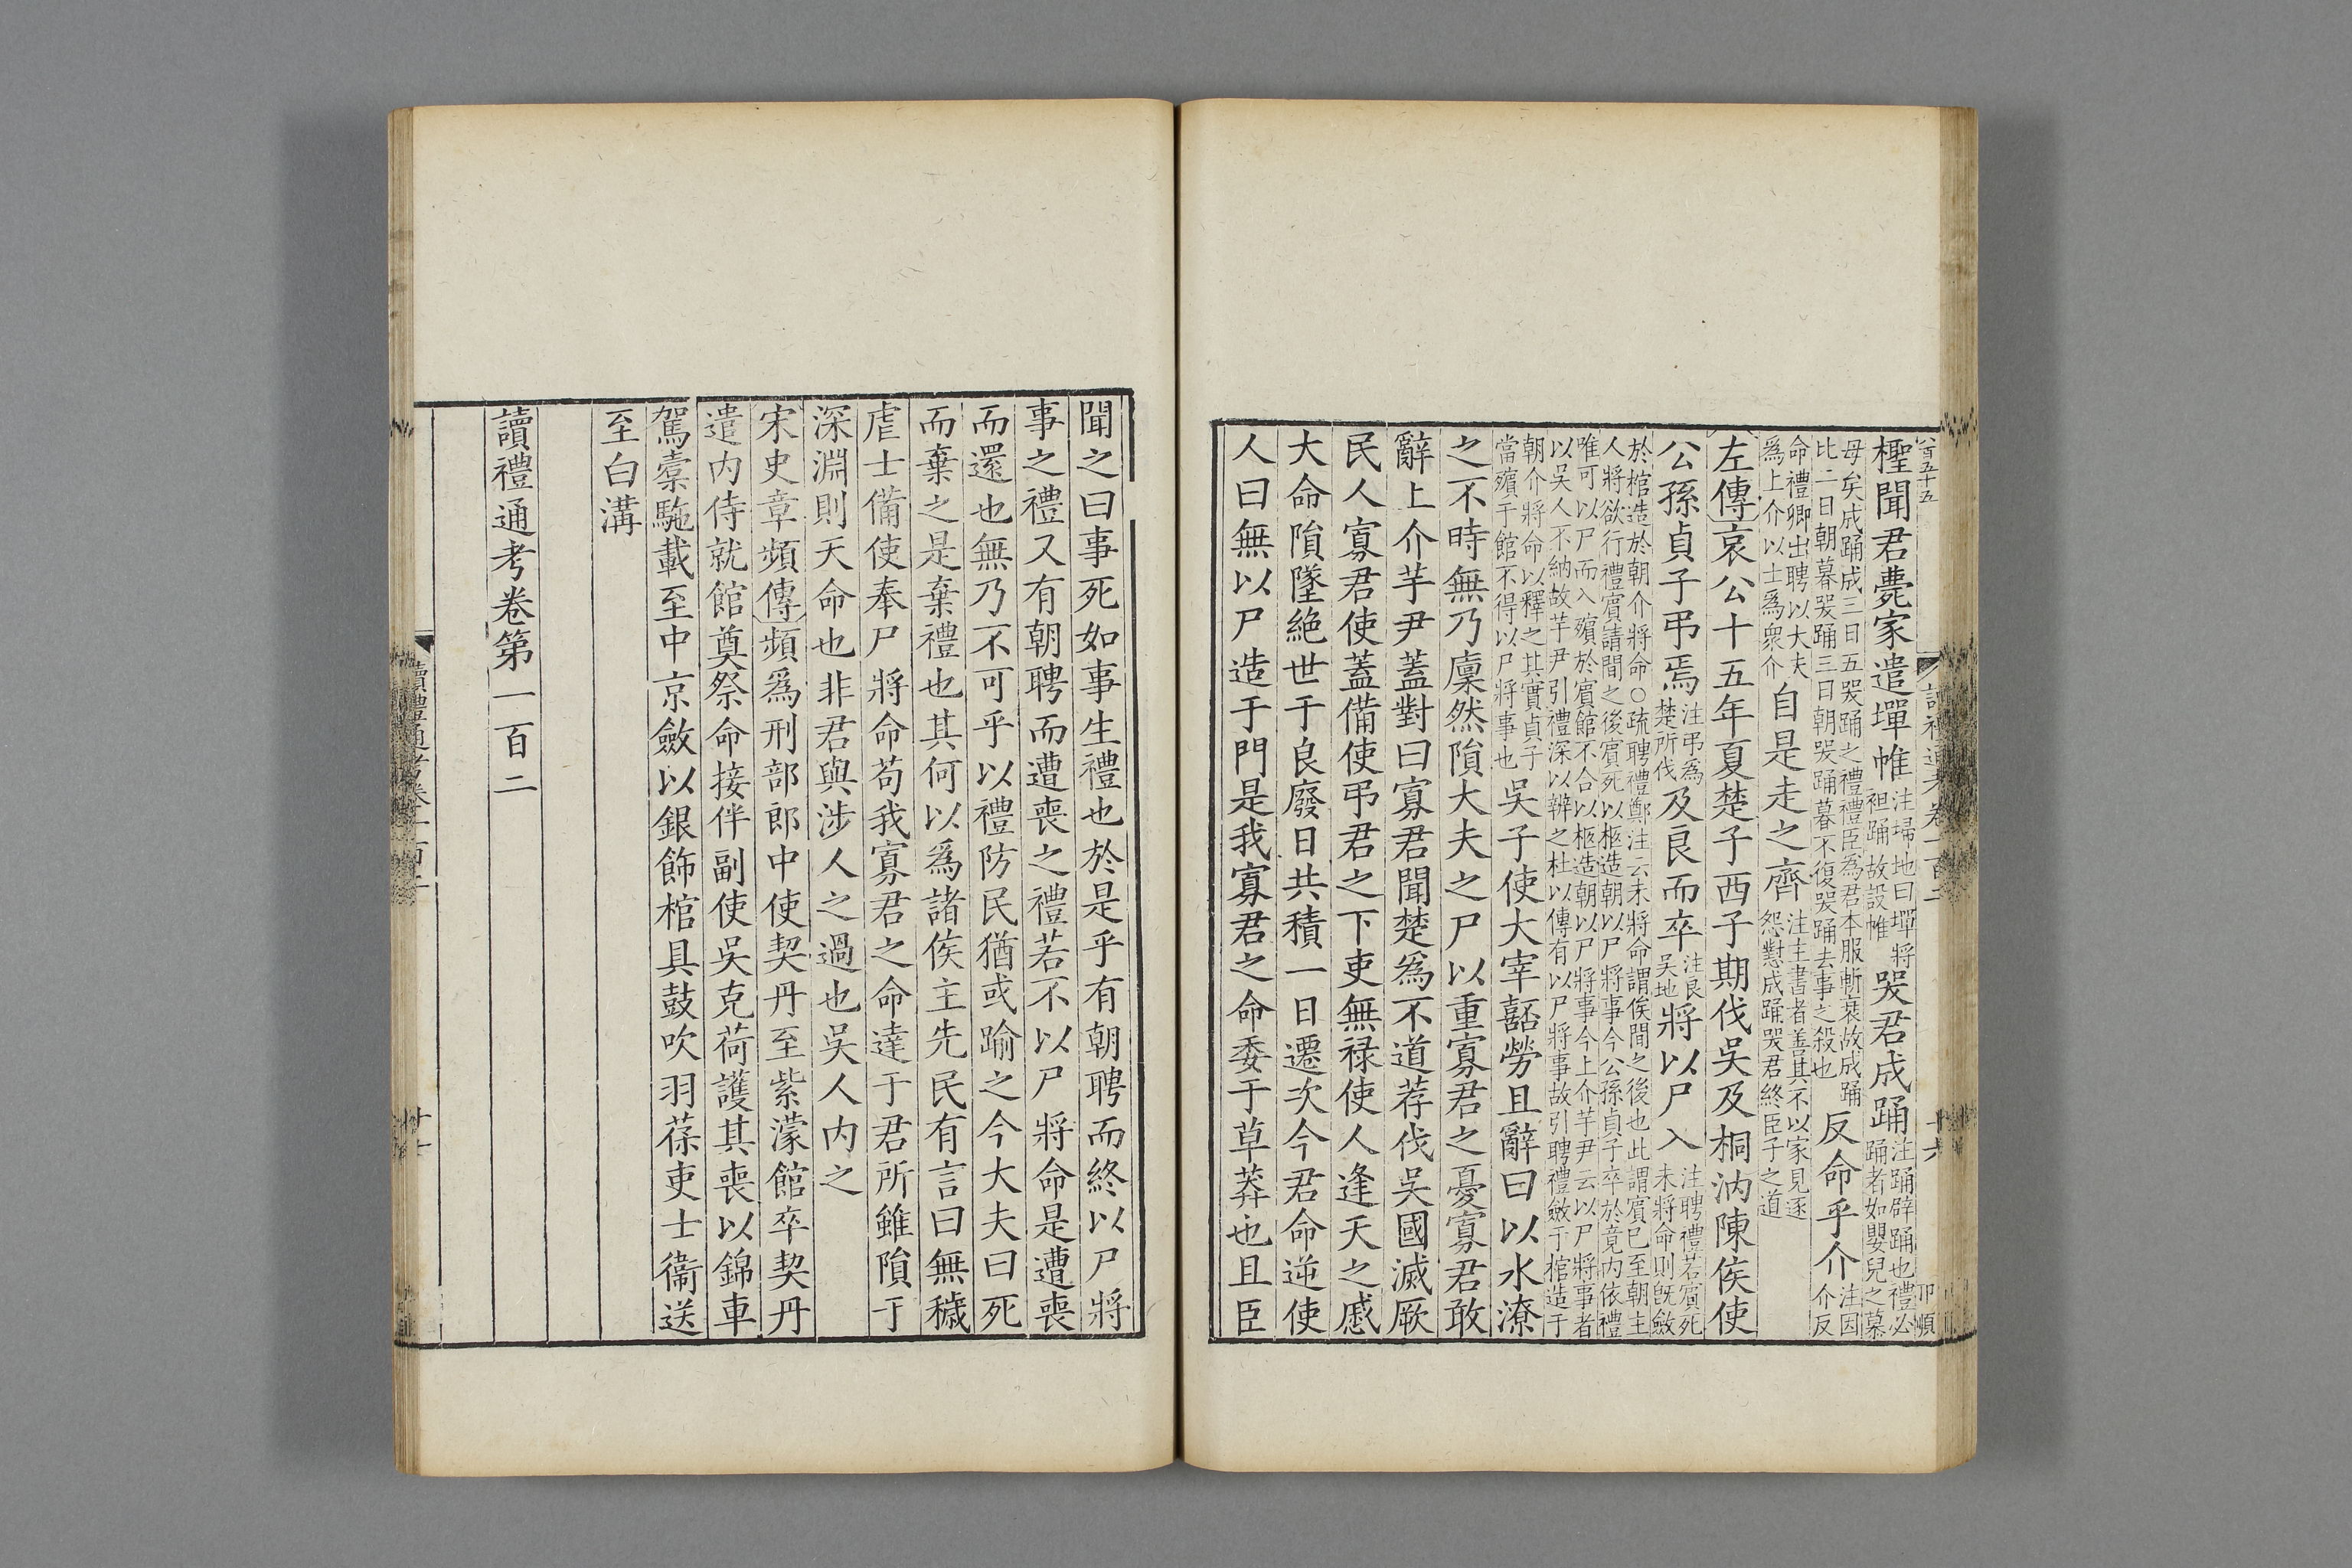 檉聞君薨家遣墠帷注埽地曰墠將袒踊故設帷哭君成踊注踊辟踊也禮必踊者如嬰兒之慕
母矣成踊成三日五哭踊之禮禮臣為君本服斬衰故成踊比二日朝暮哭踊三日朝哭踊暮不復哭踊去事之殺也反命乎介注因介反
命禮卿出聘以大夫爲上介以士爲衆介自是走之齊注主書者善其不以家見逐怨懟成踊哭君終臣子之道
左傳哀公十五年夏楚子西子期伐吳及桐汭陳侯使
公孫貞子弔焉注弔爲楚所伐及良而卒注良吳地將以尸入注聘禮若賓死未將命則既斂
於棺造於朝介將命○疏聘禮鄭注云未將命謂俟間之後也此謂賓已至朝主人將欲行禮賓請間之後賓死以柩造朝以尸將事今公孫貞子卒於竟内依禮
唯可以尸而入殯於賓館不合以柩造朝以尸將事今上介芋尹云以尸將事者以吳人不納故芋尹引禮深以辨之杜以傳有以尸將事故引聘禮斂于棺造于
朝介將命以釋之其實貞子當殯于館不得以尸將事也吳子使大宰嚭勞且辭曰以水潦
之不時無乃廩然隕大夫之尸以重寡君之憂寡君敢
辭上介芋尹蓋對曰寡君聞楚爲不道荐伐吳國滅厥
民人寡君使蓋備使弔君之下吏無禄使人逢天之慼
大命隕墜絶世于良廢日共積一日遷次今君命逆使
人曰無以尸造于門是我寡君之命委于草莽也且臣
聞之曰事死如事生禮也於是乎有朝聘而終以尸將
事之禮又有朝聘而遭喪之禮若不以尸將命是遭喪
而還也無乃不可乎以禮防民猶或踰之今大夫曰死
而棄之是棄禮也其何以爲諸侯主先民有言曰無穢
虐士備使奉尸將命苟我寡君之命達于君所雖隕于
深淵則天命也非君與涉人之過也吳人内之
宋史章頻傳頻爲刑部郎中使契丹至紫濛館卒契丹
遣内侍就館奠祭命接伴副使吳克荷護其喪以錦車
駕橐駞載至中京斂以銀飾棺具鼓吹羽葆吏士衛送
至白溝
讀禮通考卷第一百二